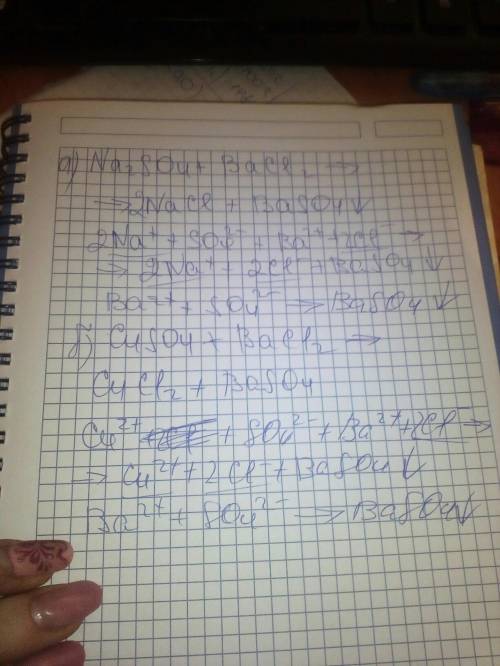 а) Na₂SO₄ + BaCl₂ →
→ 2NaCl + BaSO₄↓
2Na⁺ + SO₄²⁻ + Ba²⁺ + 2Cl⁻ →
→ 2Na⁺ + 2Cl⁻ + BaSO₄↓
Ba²⁺ + SO₄²⁻ → BaSO₄↓
б) CuSO₄ + BaCl₂ →
CuCl₂ + BaSO₄
Cu²⁺ + SO₄²⁻ + Ba²⁺ + 2Cl⁻ →
→ Cu²⁺ + 2Cl⁻ + BaSO₄↓
Ba²⁺ + SO₄²⁻ → BaSO₄↓